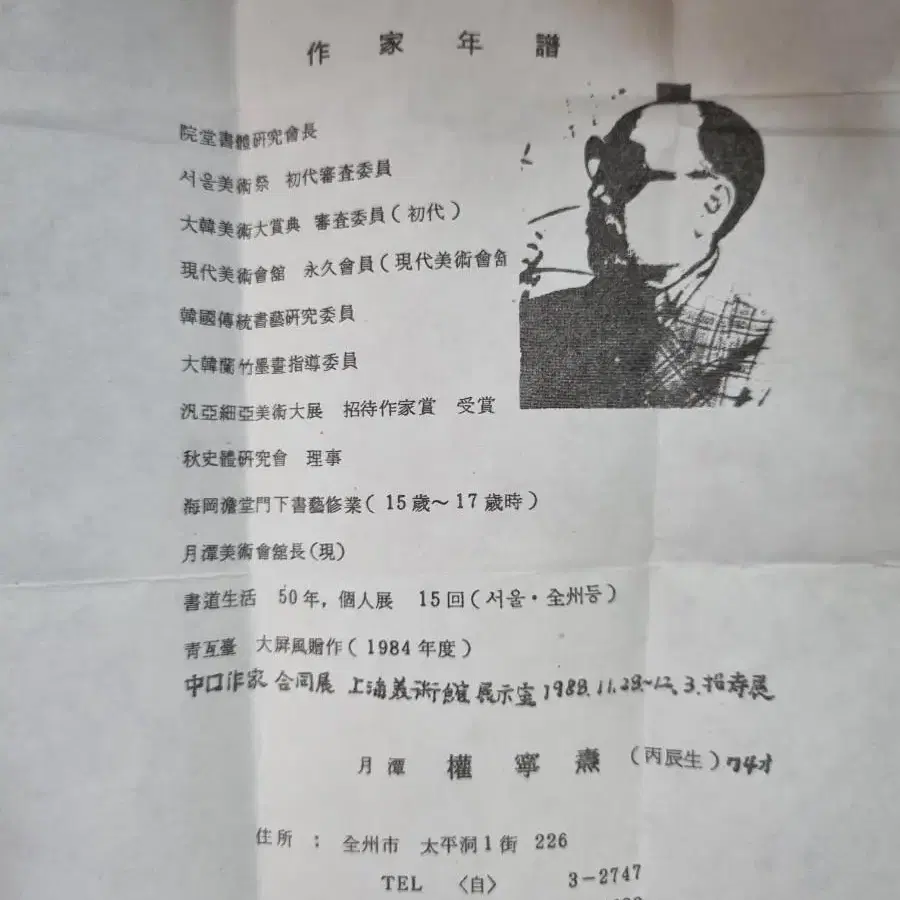 作家年譜
院堂書體硏究會長
서울美術祭 初代審査委員
大韓美術大賞典 審査委員(初代)
現代美術會舘 永久會員(現代美術會舘
韓國傳統書藝硏究委員
大韓蘭竹墨畫指導委員
汎亞細亞美術大展 招待作家賞 受賞
秋史體硏究會 理事
海岡澹堂門下書藝修業(15歲~17歲時)
月潭美術會舘長(現)
書道生活 50年, 個人展 15回(서울·全州등)
靑瓦臺 大屛風贈作(1984年度)
中口作家 合同展 上海美術館 展示室 1988.11.28~12.3.招待展
月潭 權寧熹 (丙辰生) 74才
住所 : 全州市 太平洞1街 226
TEL 〈自〉 3-2747